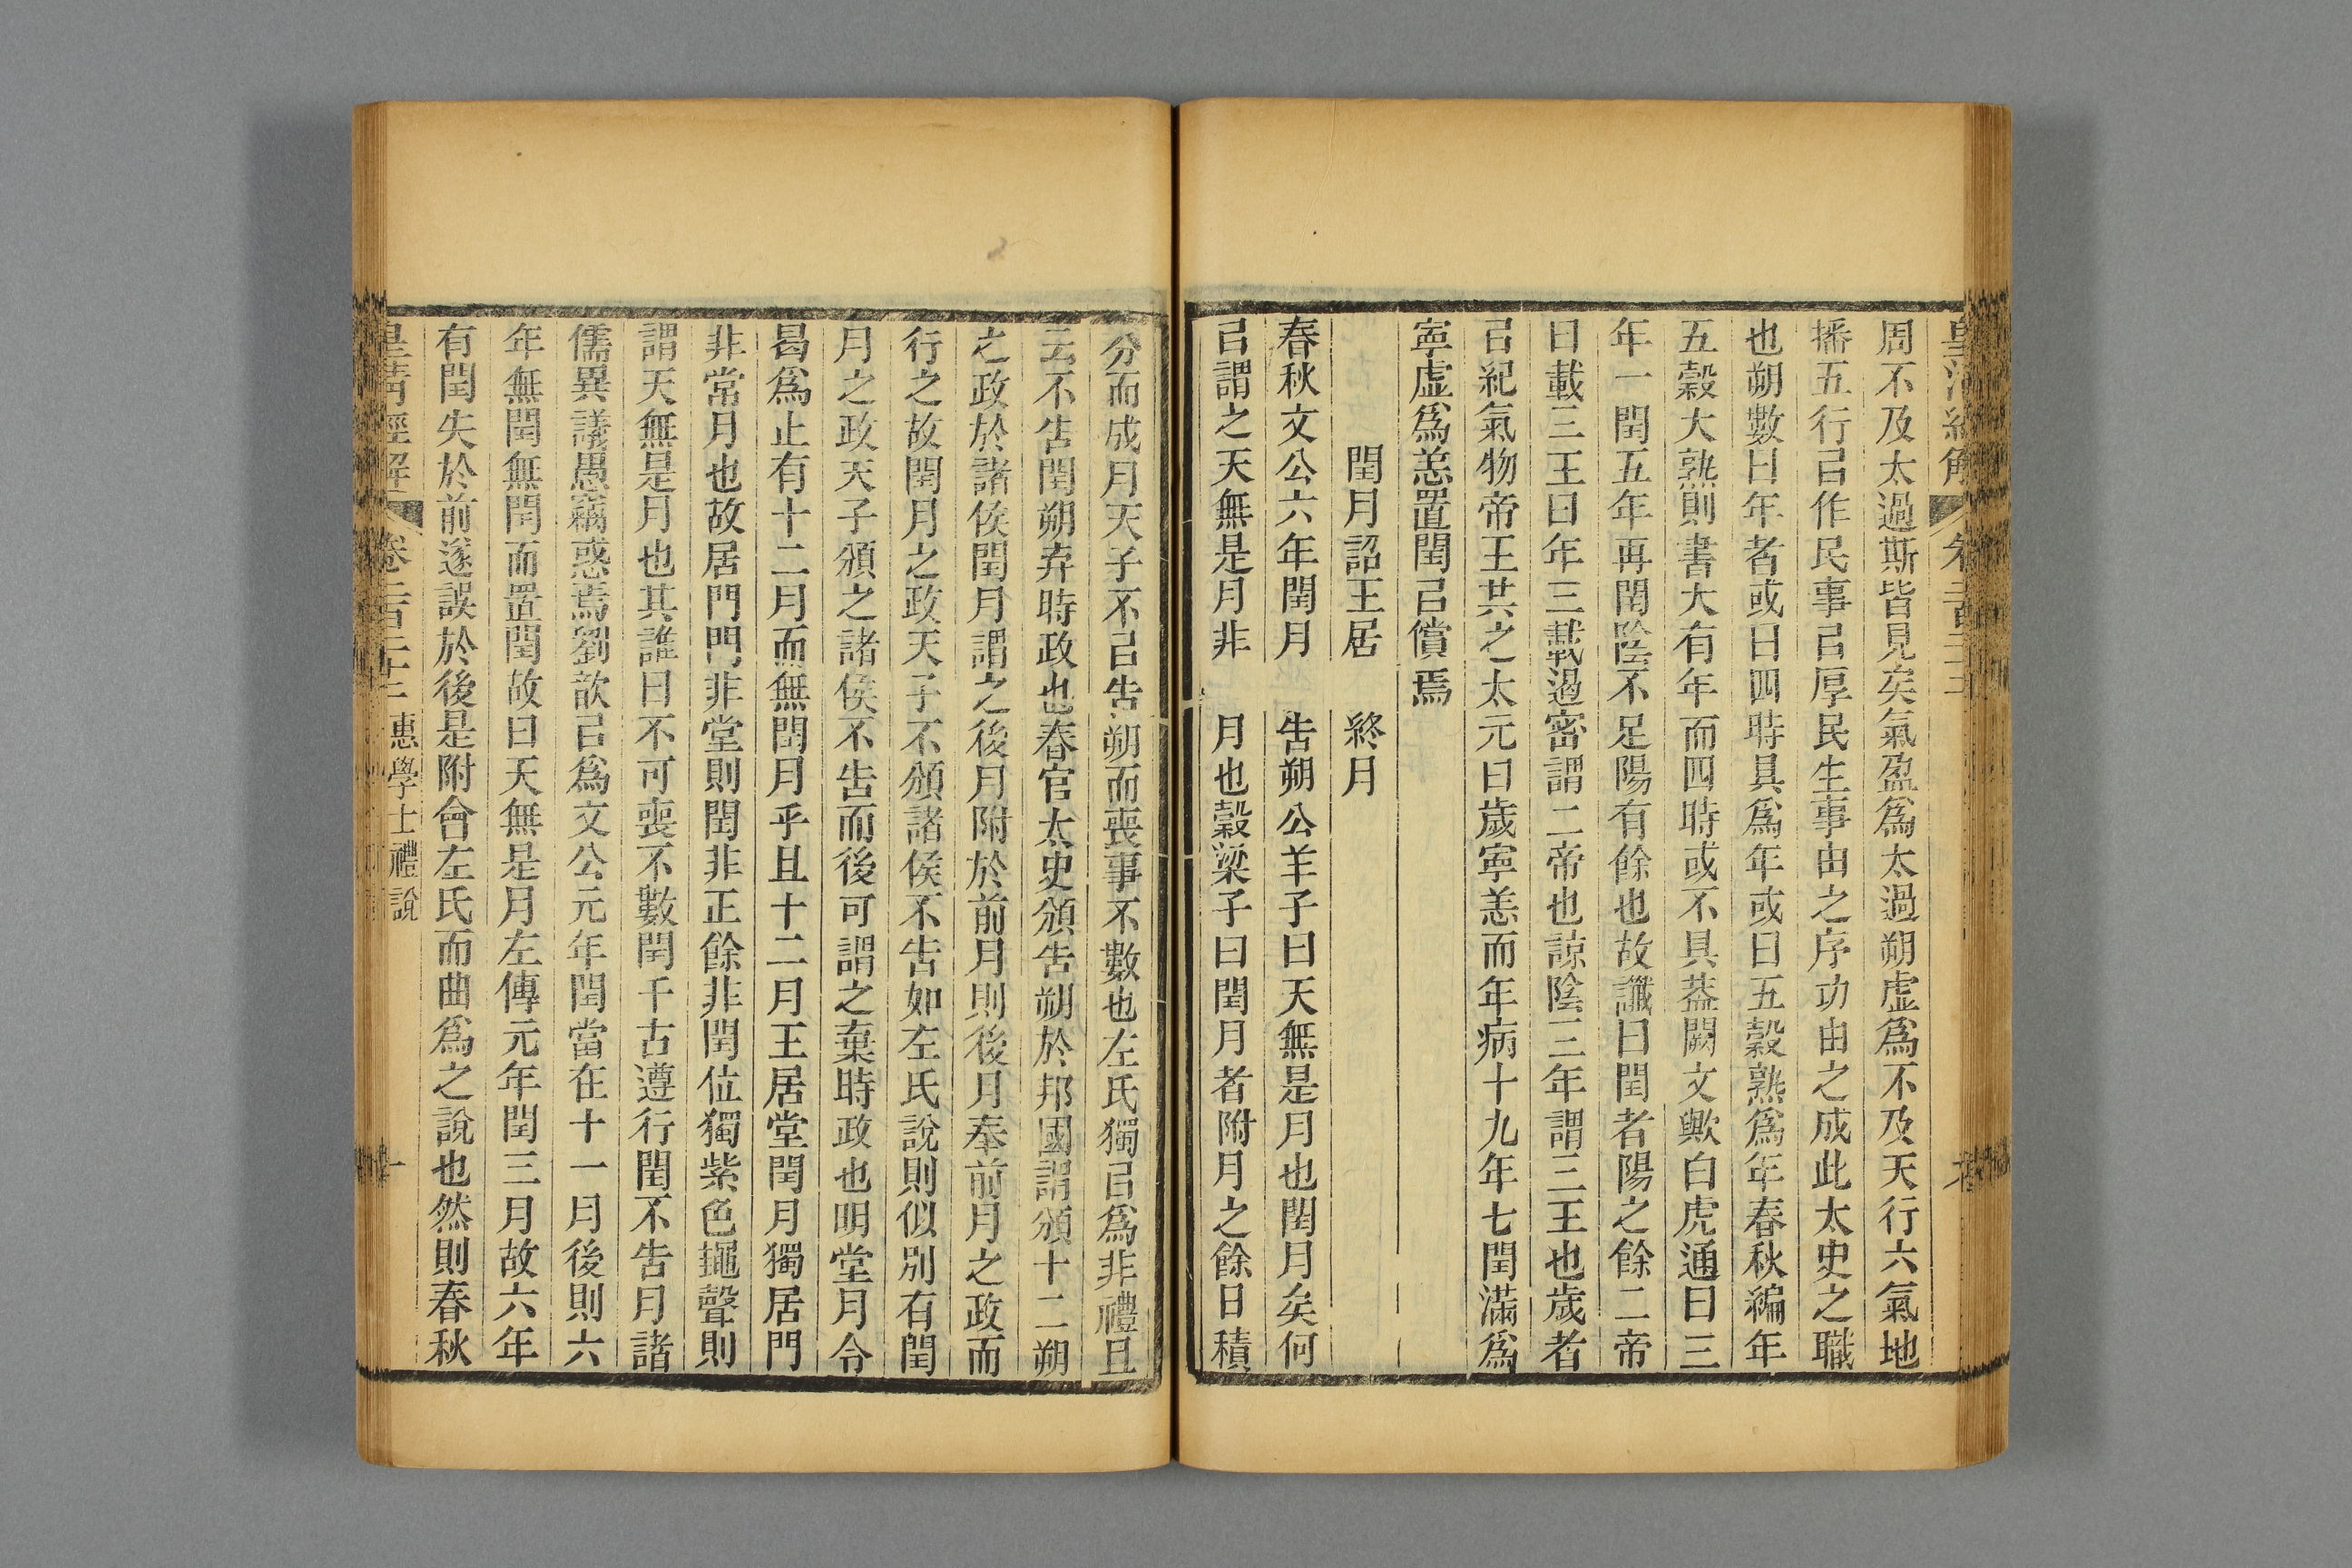 周不及太過斯皆見矣氣盈爲太過朔虛爲不及天行六氣地
播五行㠯作民事㠯厚民生事由之序功由之成此太史之職
也朔數曰年者或曰四時具爲年或曰五穀熟爲年春秋編年
五穀大熟則書大有年而四時或不具葢闕文歟白虎通曰三
年一閏五年再閏陰不足陽有餘也故讖曰閏者陽之餘二帝
曰載三王曰年三載遏密謂二帝也諒陰三年謂三王也歲者
㠯紀氣物帝王共之太元曰歲寧恙而年病十九年七閏滿爲
寧虛爲恙置閏㠯償焉
閏月詔王居 終月
春秋文公六年閏月 吿朔公羊子曰天無是月也閏月矣何
㠯謂之天無是月非 月也穀梁子曰閏月者附月之餘日積
分而成月天子不㠯吿朔而喪事不數也左氏獨㠯爲非禮且
云不吿閏朔弃時政也春官太史頒吿朔於邦國謂頒十二朔
之政於諸侯閏月謂之後月附於前月則後月奉前月之政而
行之故閏月之政天子不頒諸侯不吿如左氏說則似別有閏
月之政天子頒之諸侯不吿而後可謂之棄時政也明堂月令
曷爲止有十二月而無閏月乎且十二月王居堂閏月獨居門
非常月也故居門門非堂則閏非正餘非閏位獨紫色䵷聲則
謂天無是月也其誰曰不可喪不數閏千古遵行閏不告月諸
儒異議愚竊惑焉劉歆㠯爲文公元年閏當在十一月後則六
年無閏無閏而置閏故曰天無是月左傳元年閏三月故六年
有閏失於前遂誤於後是附會左氏而曲爲之說也然則春秋
皇淸經解 卷二百二十二 惠學士禮說